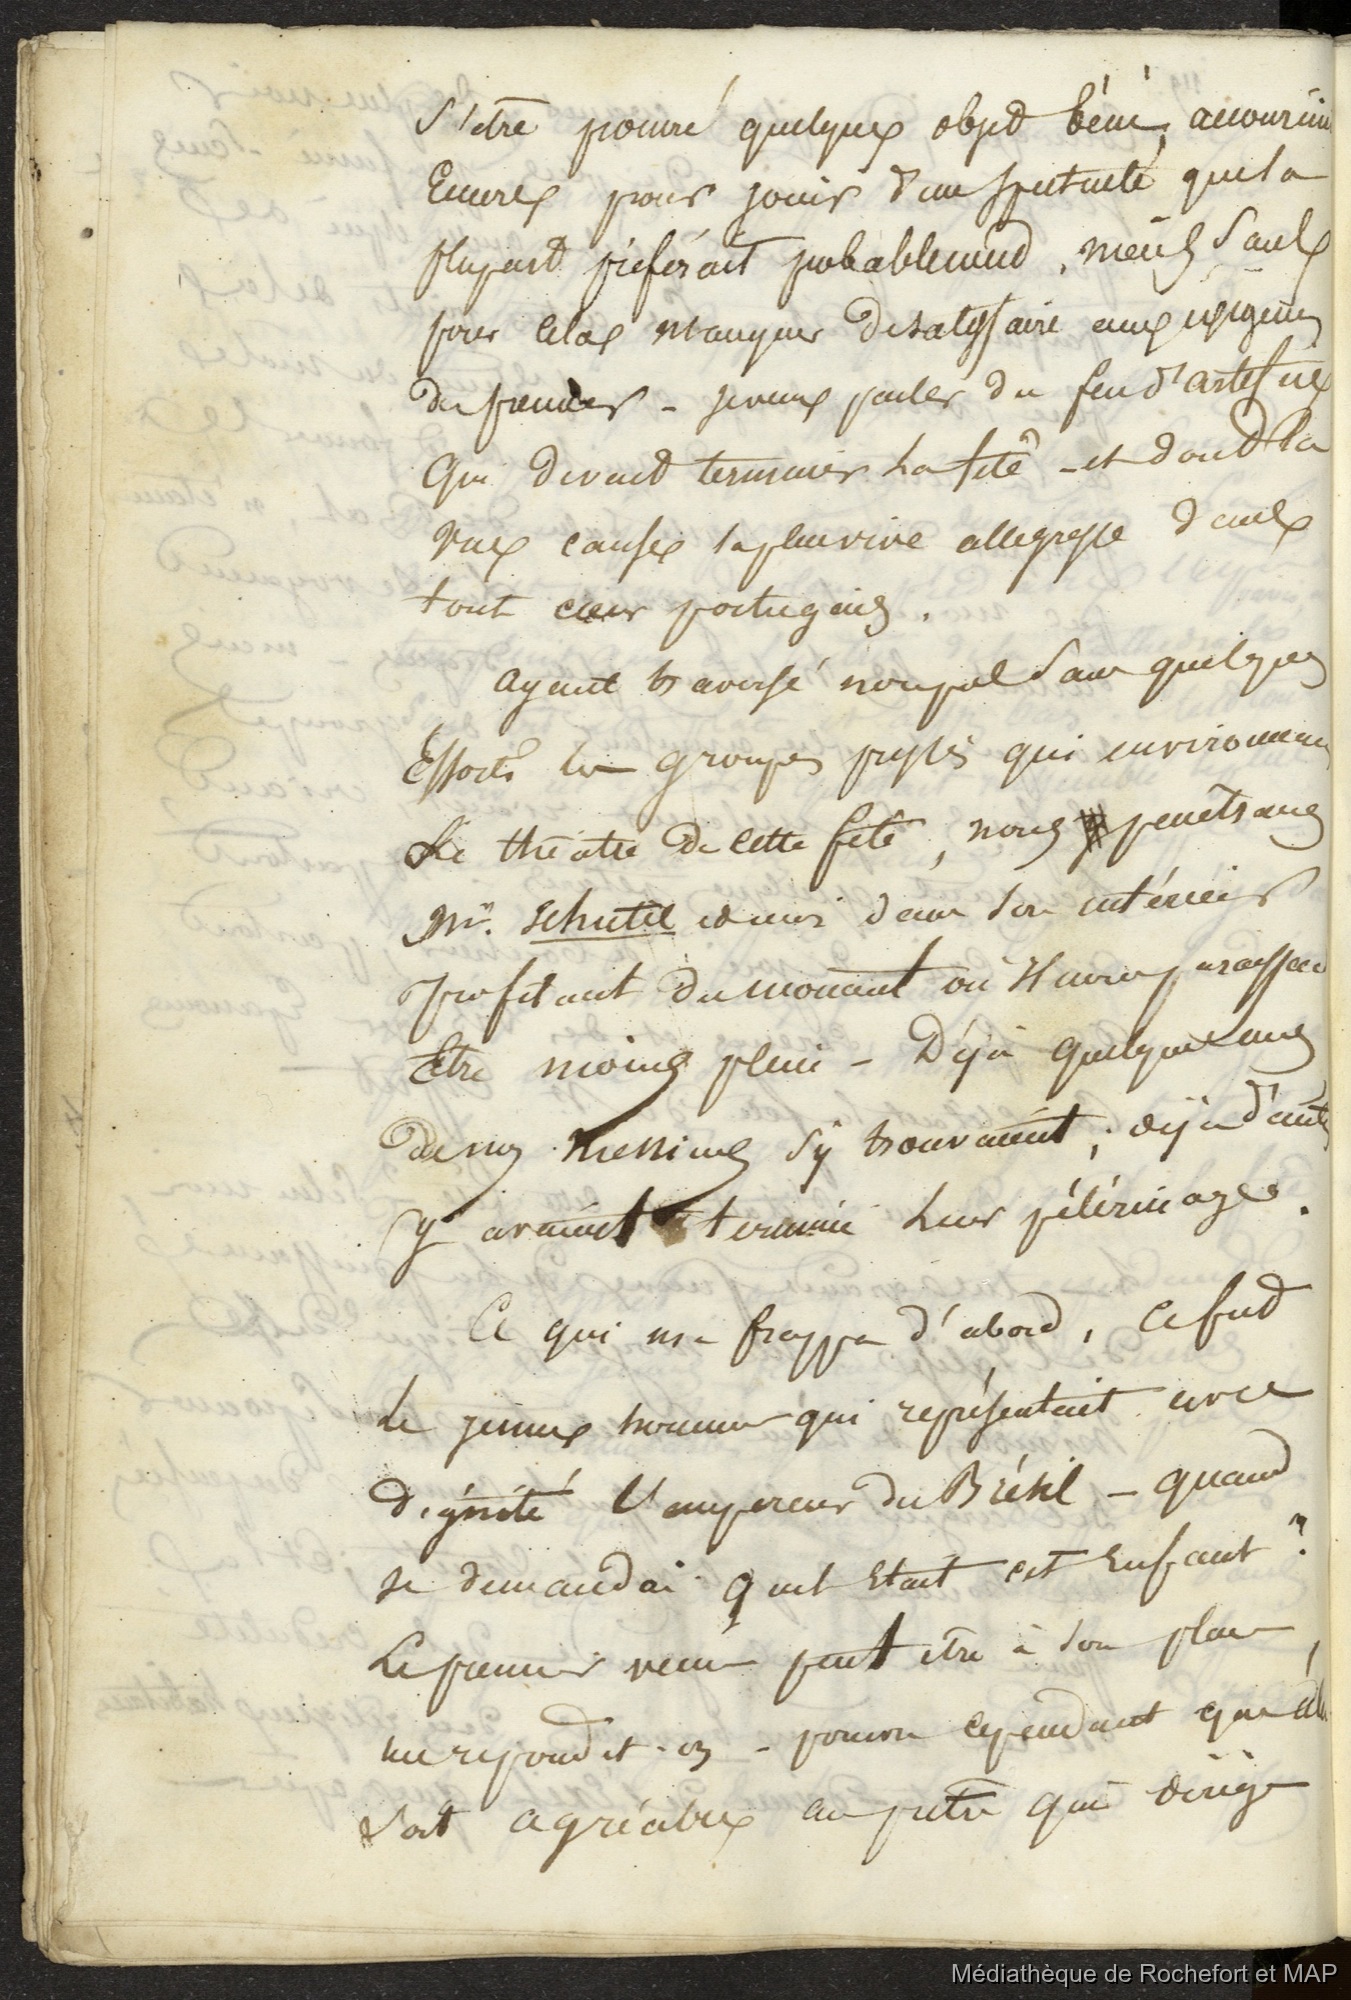 s'être pourvé quelques objet béni, accourrir
Encores pour jouir d'un spectacle que la
plupart préférait probablement, mais sans
pour cela manquer de satisfaire aux exigences
du premier - je veux parler du feu d'artifice
qui devait terminer la fête - et dont la
vue cause la plus vive allegresse dans
tout cœur portugais.
ayant traversé non pas sans quelques
Efforts les groupes pressés qui environnaient
Le théatre de cette fête, nous pénétrames
Mr. Schutel et moi dans son intérieur
profitant du moment où
Etre moins plein - Déjà quelques uns
de nos messieurs s'y trouvaient, déjà d'autres
y avaient terminé leur pélérinage.
Ce qui me frappa d'abord, ce fut
Le jeune homme qui représentait avec
dignité l'empereur du Brésil - quand
je demandai quel était cet Enfant ?
Le premier venu peut être à son place,
me répondit-on - pourvu cependant que
soit agréable au prêtre qui dirige
Médiathèque de Rochefort et MAP